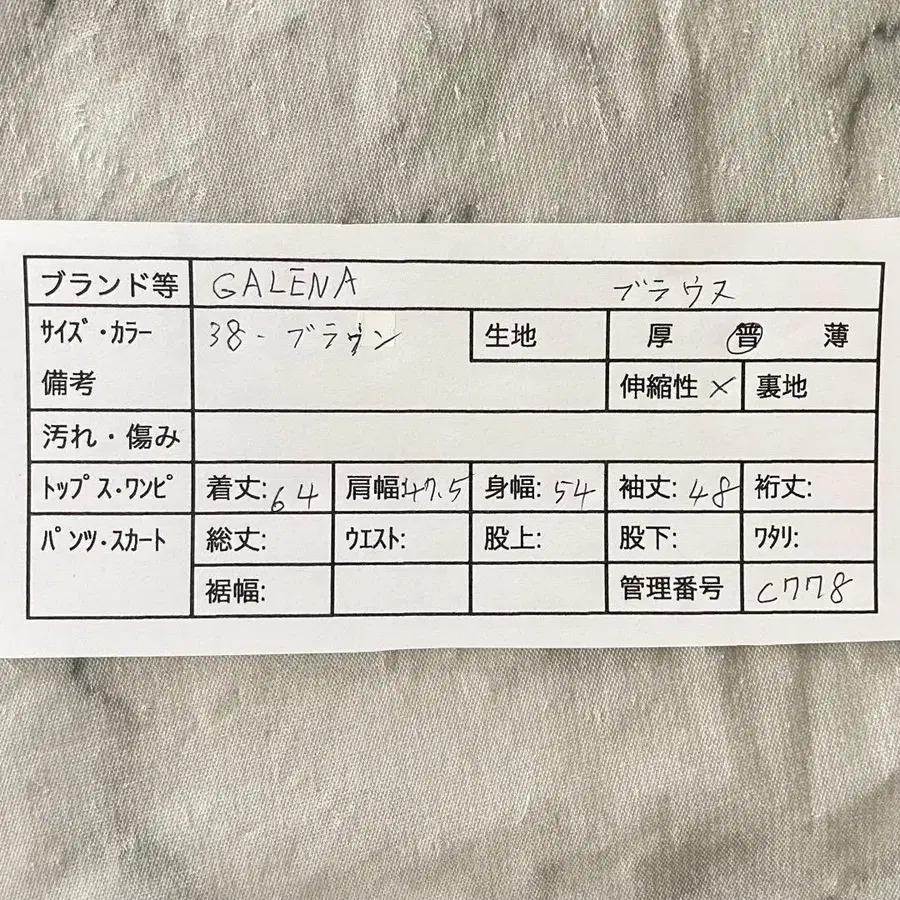 ブランド等 GALENA ブラウス
サイズ・カラー 38-ブラウン 生地 厚 普 薄
備考 伸縮性 × 裏地
汚れ・傷み
トップス・ワンピ 着丈:64 肩幅:47.5 身幅:54 袖丈:48 裄丈:
パンツ・スカート 総丈: ウエスト: 股上: 股下: ワタリ:
裾幅: 管理番号 C778